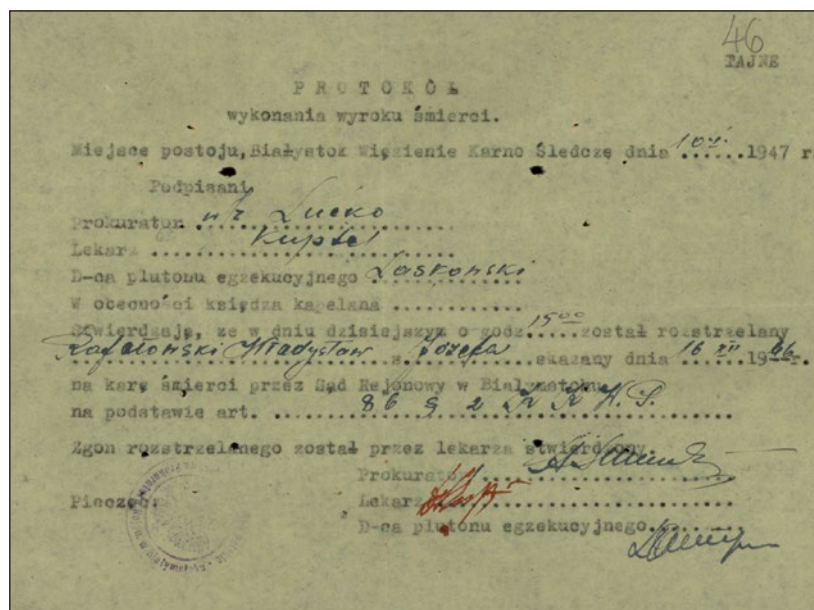 46
TAJNE
PROTOKÓŁ
wykonania wyroku śmierci.
Miejsce postoju, Białystok Więzienie Karno Śledczę dnia ......1947 r.
Podpisani
Prokurator ................
Lekarz ................
D-ca plutonu egzekucyjnego Laskowski
W obecności księdza kapelana ............
Stwierdzają, że w dniu dzisiejszym o godz 15⁰⁰ został rozstrzelany
Rafałowski Władysław s. Józefa skazany dnia 16 XII 1946 r.
na karę śmierci przez Sąd Rejonowy w Białymstoku
na podstawie art. 86 § 2 K K W.P.
Zgon rozstrzelanego został przez lekarza stwierdzony
Prokurator
Pieczęć
Lekarz
D-ca plutonu egzekucyjnego